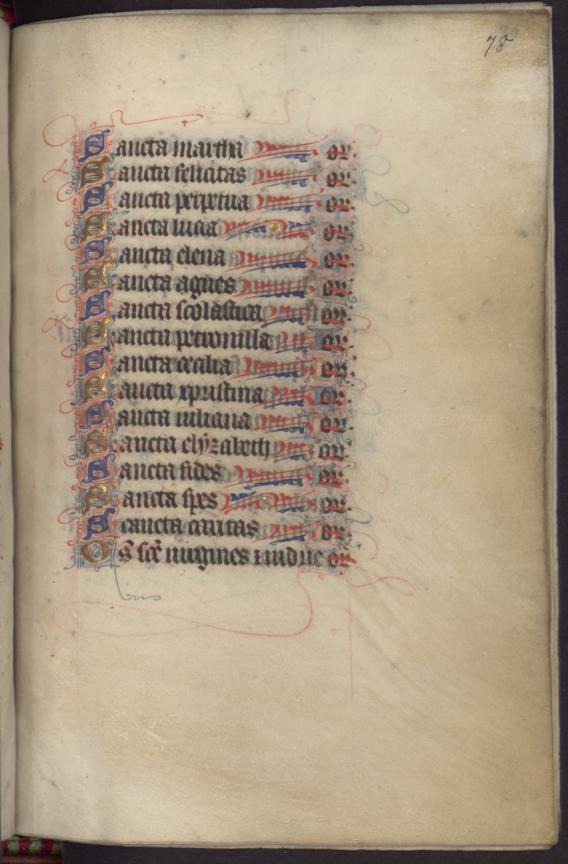 78
Sancta martha or.
Sancta felicitas or.
Sancta perpetua or.
Sancta lucia or.
Sancta elena or.
Sancta agnes or.
Sancta scolastica or.
Sancta petronilla or.
Sancta cecilia or.
Sancta xpristina or.
Sancta iuliana or.
Sancta elyzabeth or.
Sancta fides or.
Sancta spes or.
Sancta caritas or.
Os̄ scē uirgines ⁊ uidue or.